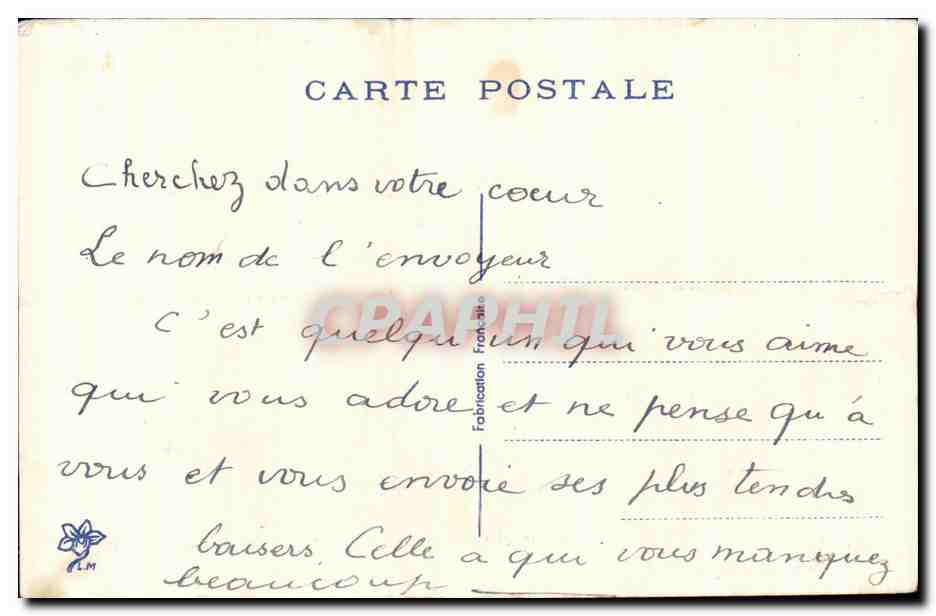 CARTE POSTALE
Cherchez dans votre coeur
Le nom de l'envoyeur
C'est quelqu'un qui vous aime
qui vous adore et ne pense qu'à
vous et vous envoie ses plus tendres
baisers Celle a qui vous manquez
beaucoup
Fabrication Française
CPAPHIL
L.M